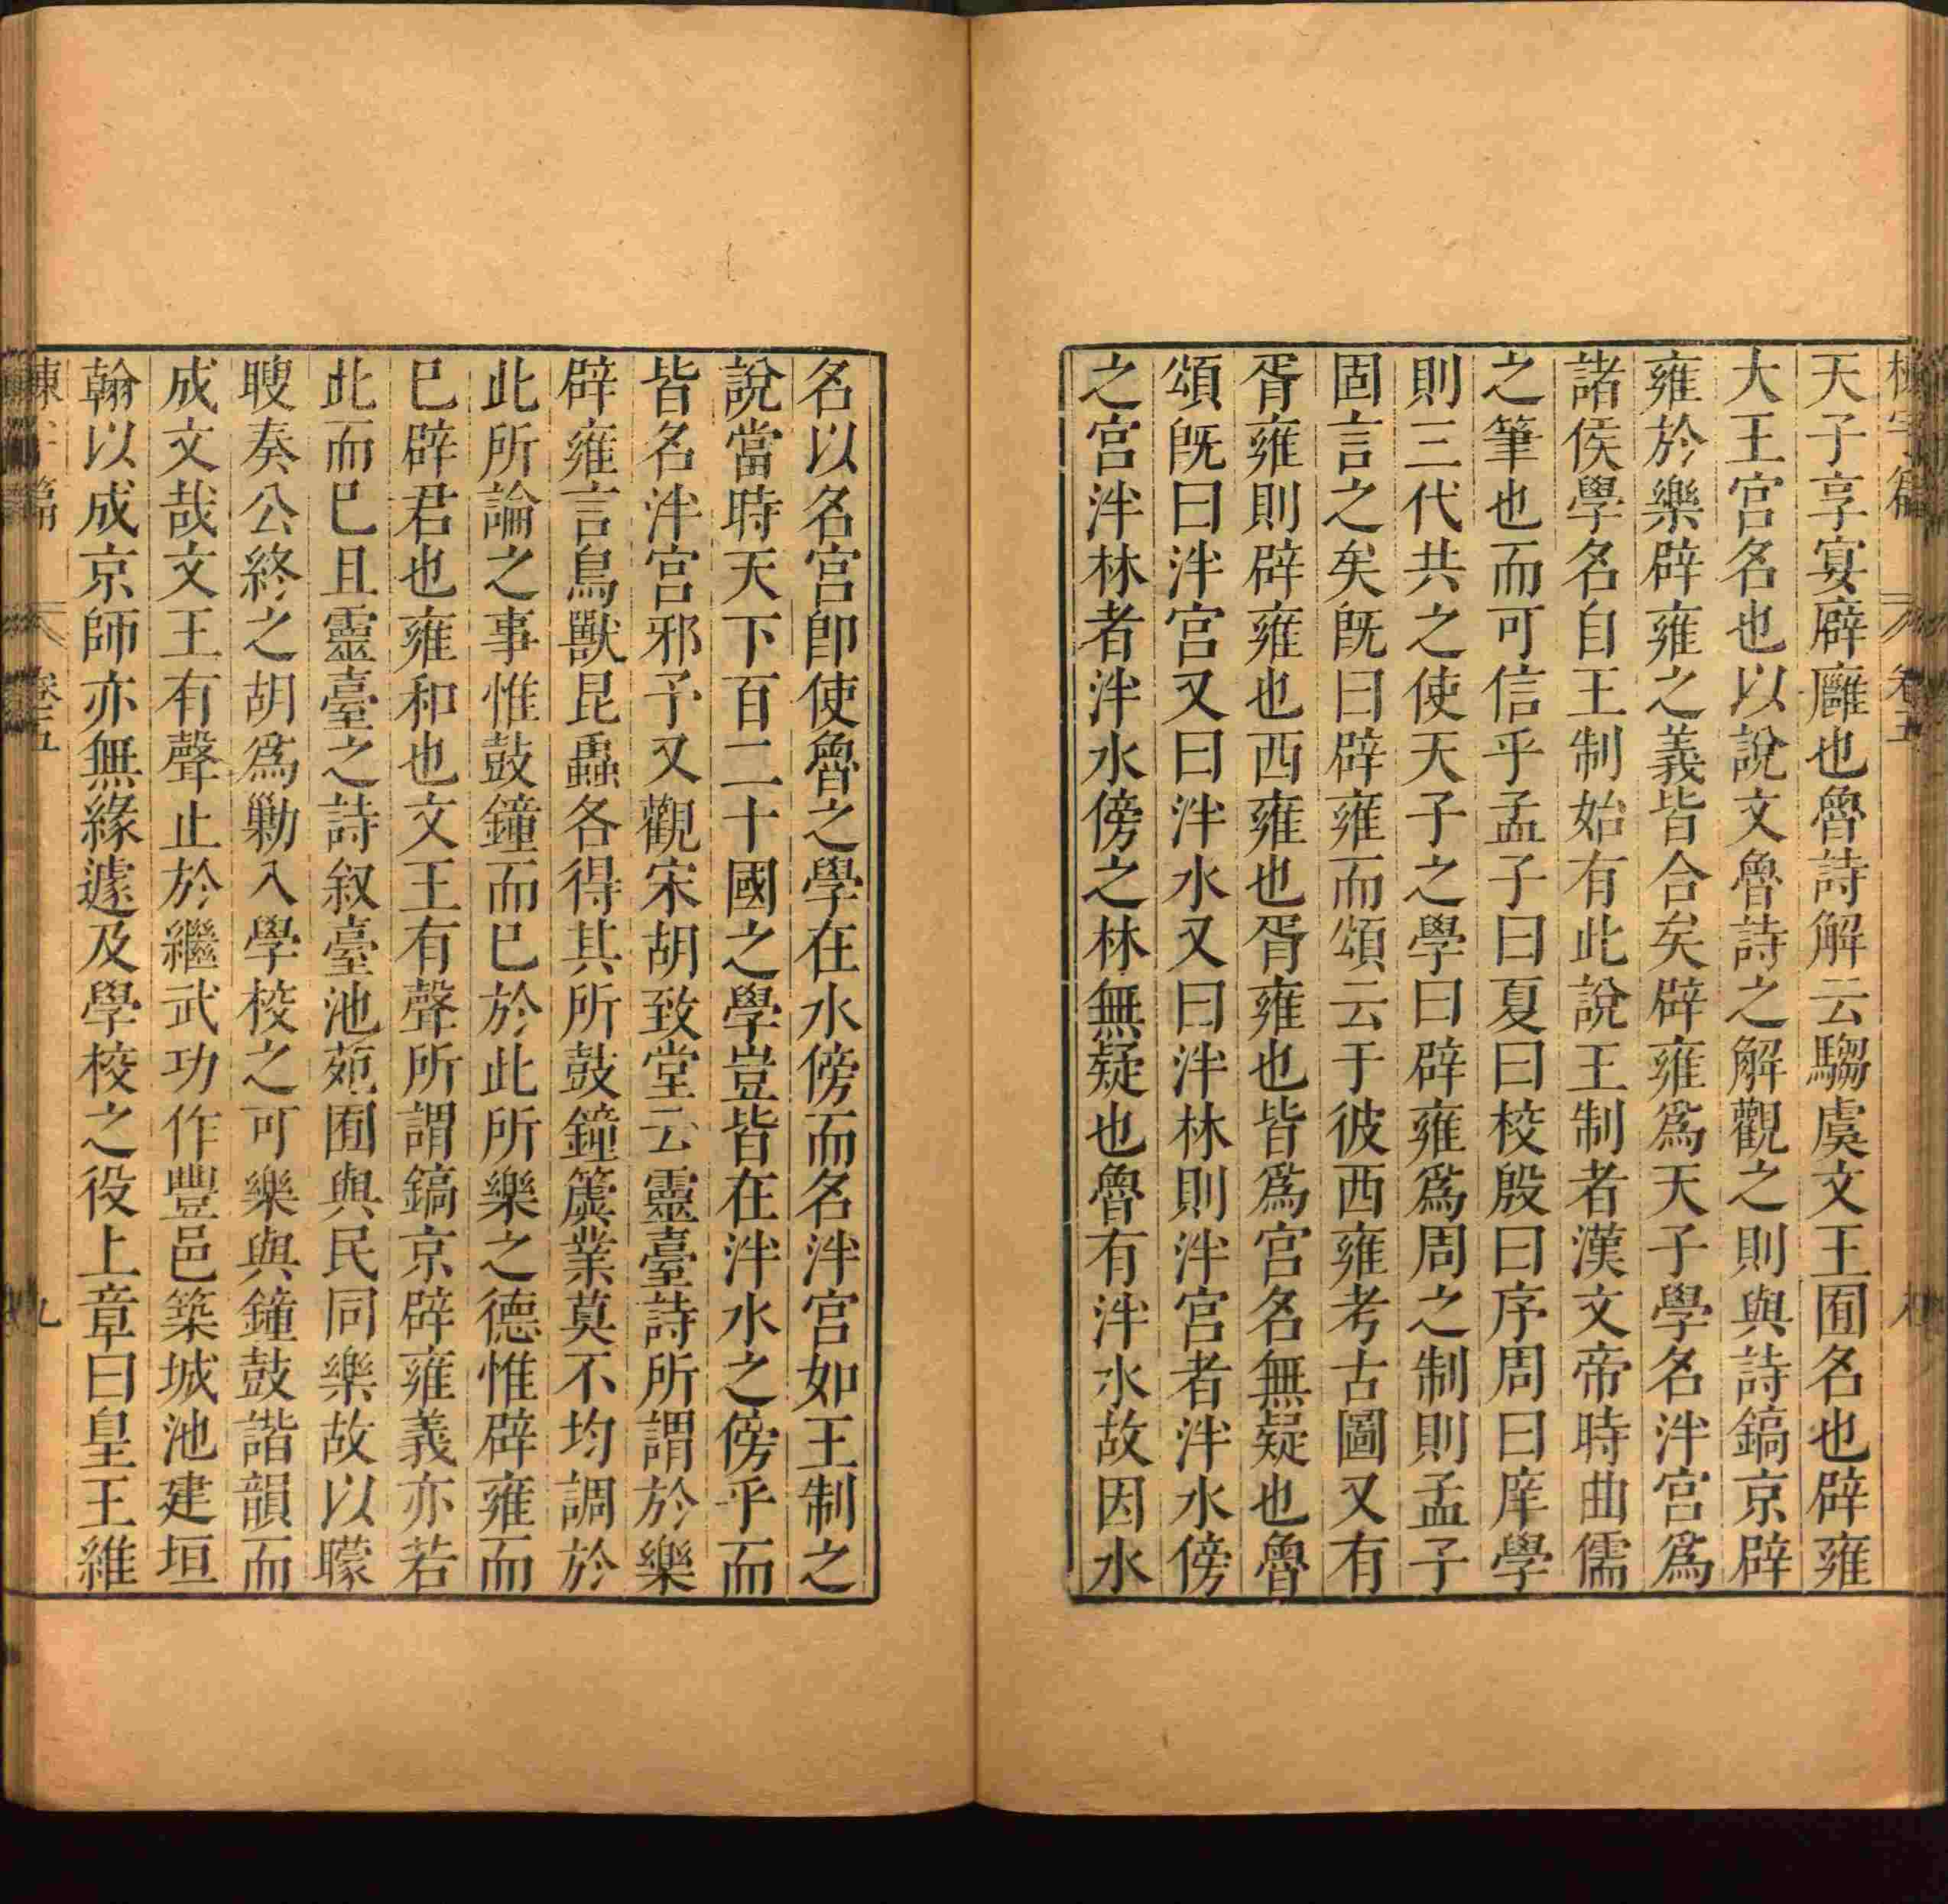 卷五
天子享宴辟廱也魯詩解云騶虞文王囿名也辟雍
大王宮名也以說文魯詩之解觀之則與詩鎬京辟
雍於樂辟雍之義皆合矣辟雍爲天子學名泮宮爲
諸侯學名自王制始有此說王制者漢文帝時曲儒
之筆也而可信乎孟子曰夏曰校殷曰序周曰庠學
則三代共之使天子之學曰辟雍爲周之制則孟子
固言之矣旣曰辟雍而頌云于彼西雍考古圖又有
胥雍則辟雍也西雍也胥雍也皆爲宮名無疑也魯
頌旣曰泮宮又曰泮水又曰泮林則泮宮者泮水傍
之宮泮林者泮水傍之林無疑也魯有泮水故因水
名以名宮卽使魯之學在水傍而名泮宮如王制之
說當時天下百二十國之學豈皆在泮水之傍乎而
皆名泮宮邪予又觀宋胡致堂云靈臺詩所謂於樂
辟雍言鳥獸昆蟲各得其所鼓鐘簴業莫不均調於
此所論之事惟鼓鐘而巳於此所樂之德惟辟雍而
巳辟君也雍和也文王有聲所謂鎬京辟雍義亦若
此而巳且靈臺之詩叙臺池苑囿與民同樂故以矇
瞍奏公終之胡爲勦入學校之可樂與鐘鼓諧韻而
成文哉文王有聲止於繼武功作豐邑築城池建垣
翰以成京師亦無緣遽及學校之役上章曰皇王維
卷五 九